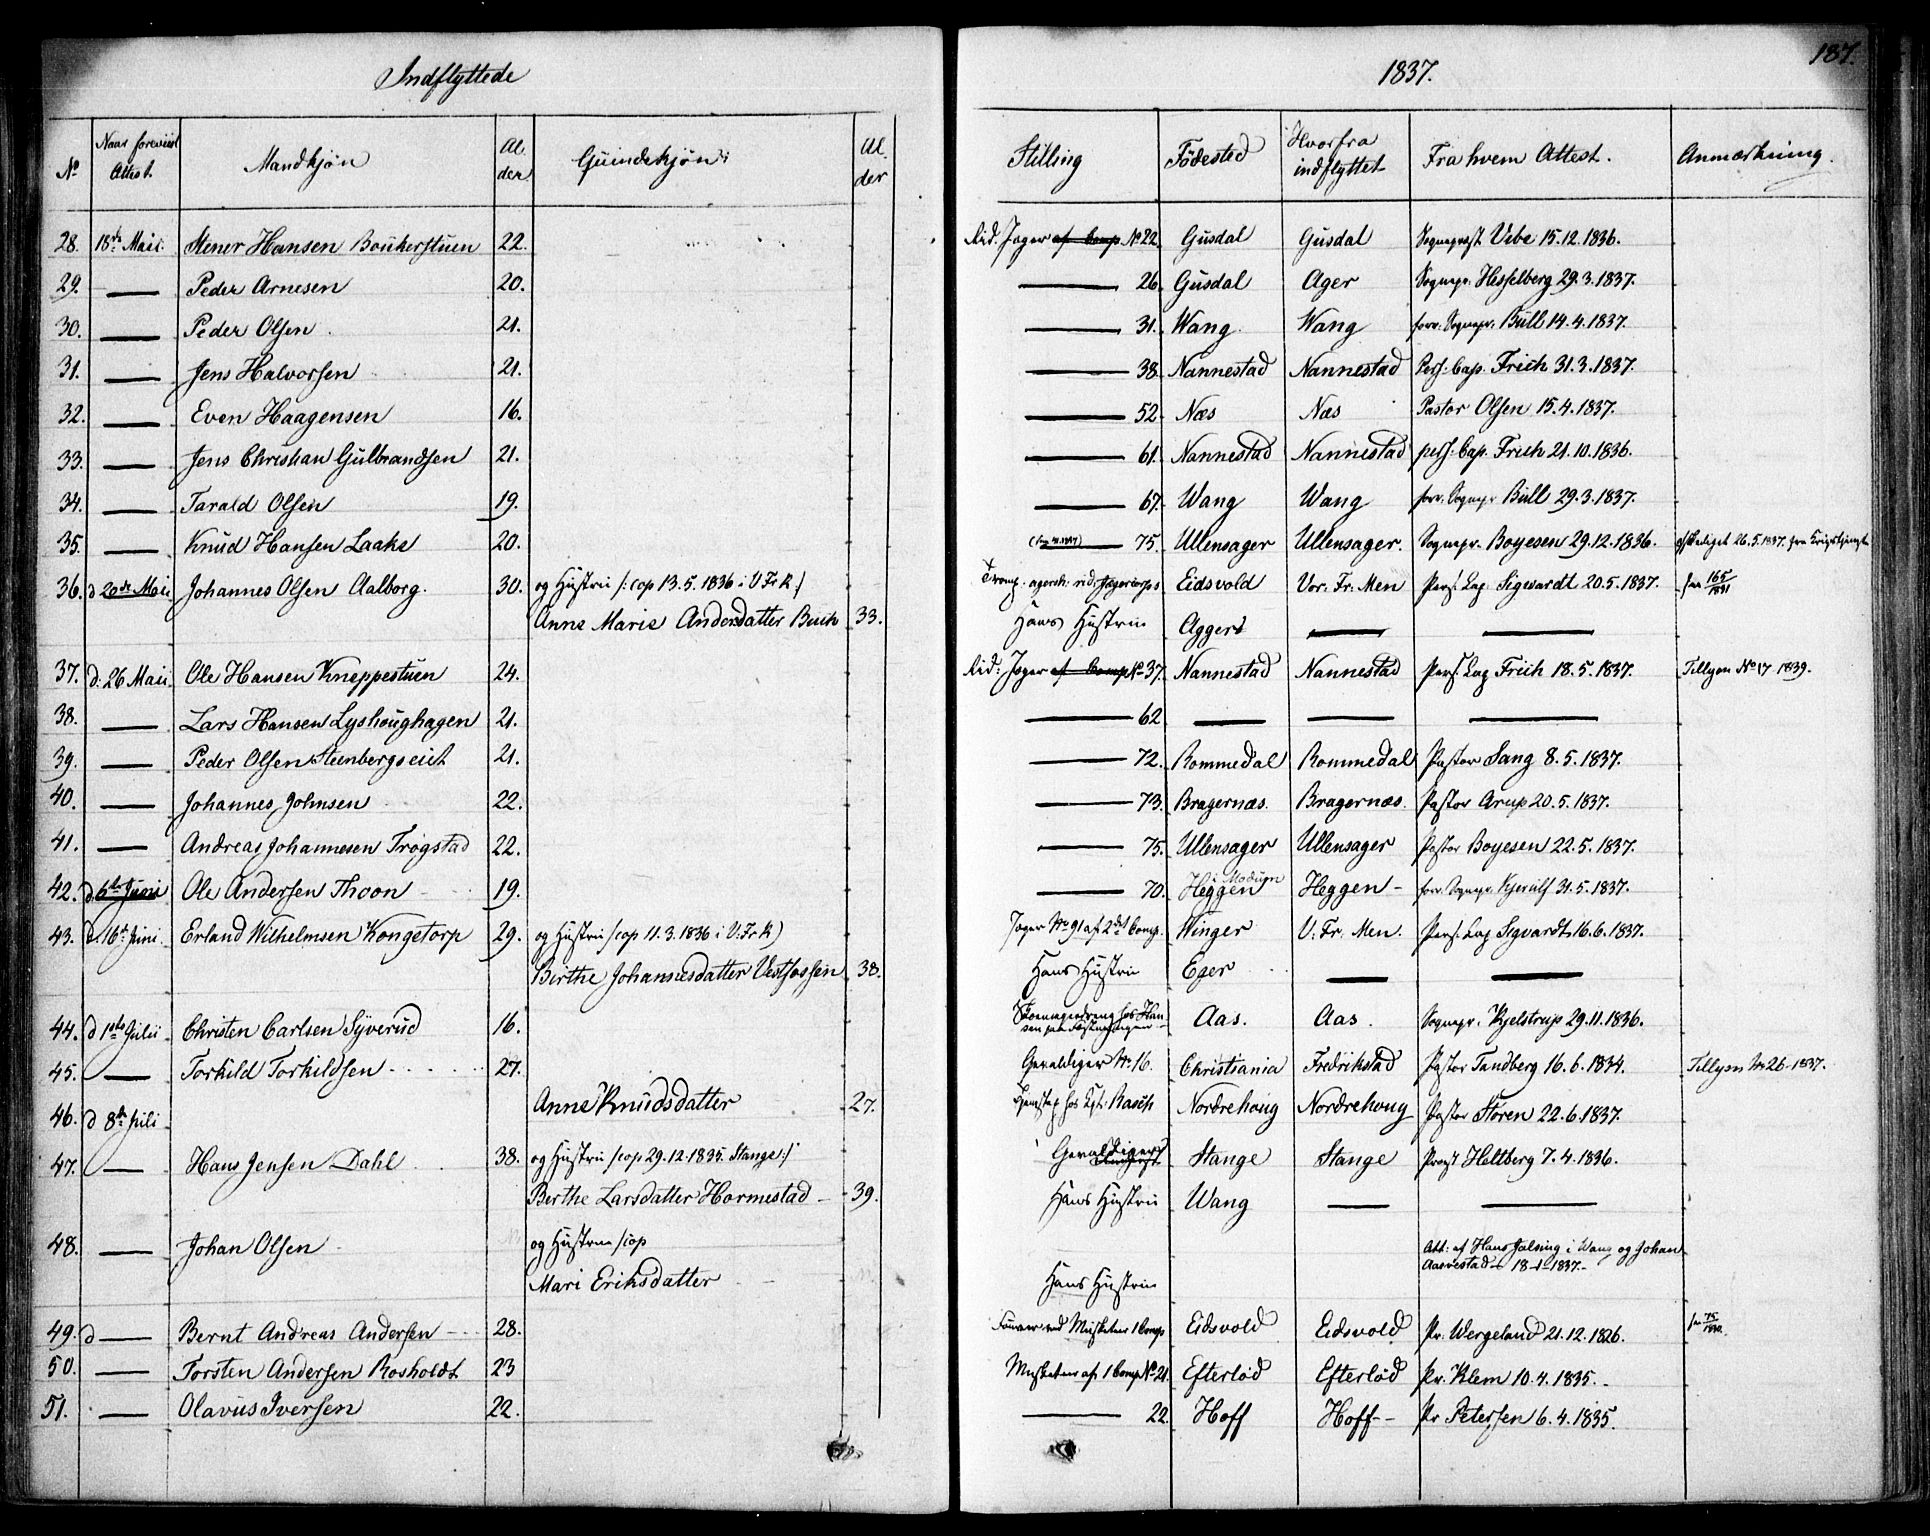 Indflyttede
1837.
187.
No Naar foreviist Attest. Mandkjøn Alder Quindekjøn Alder Stilling Födested Hvorfra indflyttet Fra hvem Attest. Anmærkning.
28. 18de Maii. Stener Hansen Boukerstuen 22. Rid. Jæger af Comp. No 22 Gusdal Gusdal Sogneprest Vibe 15.12.1836.
29. — Peder Arnesen 20. — 26. Gusdal Ager Sognepr. Hesselberg 29.3.1837.
30. — Peder Olsen 21. — 31. Wang Wang forr. Sognepr. Bull 14.4.1837.
31. — Jens Halvorsen 21. — 38. Nannestad Nannestad Pers. Cap. Frich 31.3.1837.
32. — Even Haagensen 16. — 52. Næs Næs Pastor Olsen 15.4.1837.
33. — Jens Christian Gulbrandsen 21. — 61. Nannestad Nannestad pers. Cap. Frich 21.10.1836.
34. — Tarald Olsen 19. — 67. Wang Wang forr. Sognepr. Bull 29.3.1837.
35. — Knud Hansen Laake 20. — 75. Ullensager Ullensager. Sognepr. Boyesen 29.12.1836. 26.5.1837. fra Krigstjeneste
36. d 20de Maii Johannes Olsen Aalborg. 30. og Hustru /: cop 13.5.1836 i V Fr K :/ Tromp. agersh. rid. Jægercorps Eidsvold Vor. Fr: Men Pers: Cap Sigvardt 20.5.1837. 165/1831
Anne Marie Andersdatter Buch 33. Hans Hustru Aggers — —
37. d. 26 Maii Ole Hansen Kneppestuen 24. Rid: Jæger af Comp No 37. Nannestad Nannestad Pers. Cap Frich 18.5.1837. Tillysn No 17 1839.
38. — Lars Hansen Lyshoughagen 21. — 62 — — —
39. — Peder Olsen Steenbergseiet 21. — 72. Rommedal Rommedal Pastor Sang 8.5.1837.
40. — Johannes Johnsen 22. — 73. Bragernæs. Bragernæs. Pastor Arup 20.5.1837.
41. — Andreas Johannesen Trøgstad 22. — 75. Ullensager Ullensager Pastor Boyesen 22.5.1837.
42. d 6te Junii Ole Andersen Thoon 19. — 70. Heggen i Modum Heggen — forr. Sognepr. Kjerulf 31.5.1837.
43. d. 16de Juni Erland Wilhelmsen Kongetorp 29. og Hustru /cop 11.3.1836 i V: Fr K) Jæger No 91 af 2det Comp. Winger V: Fr. Men. Pers: Cap Sigvardt 16.6.1837.
Birthe Johannesdatter Vestfossen 38. Hans Hustru Eger — —
44. d 1ste Julii Christen Carlsen Syverud 16. Skomagerdreng hos Hansen paa Fæstningen Aas. Aas. Sognepr. Kjelstrup 29.11.1836.
45. — Torkild Torkildsen 27. Geraldiger No 16. Christiania Fredrikstad Pastor Tandberg 16.6.1834. Tillysn No 26 1837.
46. d 8de Juli Anne Knudsdatter 27. hos Rasch Nordrehoug Nordrehoug Pastor Støren 22.6.1837.
47. — Hans Jensen Dahl 38. og Hustru /cop 29.12.1835. Stange :/ Geraldiger Stange Stange Provst Heltberg 7.4.1836.
Berthe Larsdatter Hormestad — 39. Hans Hustru Wang — —
48. — Johan Olsen og Hustrue /cop Att: af Hans Jalsing i Wang og Johan Aasvestad 18-1-1837.
Mari Eriksdatter Hans Hustru
49. d — Bernt Andreas Andersen 28. ved Musketeer 1 Comp Eidsvold Eidsvold Pr. Wergeland 21.12.1826.
50. — Torsten Andersen Rosholdt 23 Musketeer af 1 Comp No 21. Efterlød Efterlød Pr. Klem 10.4.1835.
51. — Olavus Iversen 22. — 22. Hoff Hoff — Pr Petersen 6.4.1835.